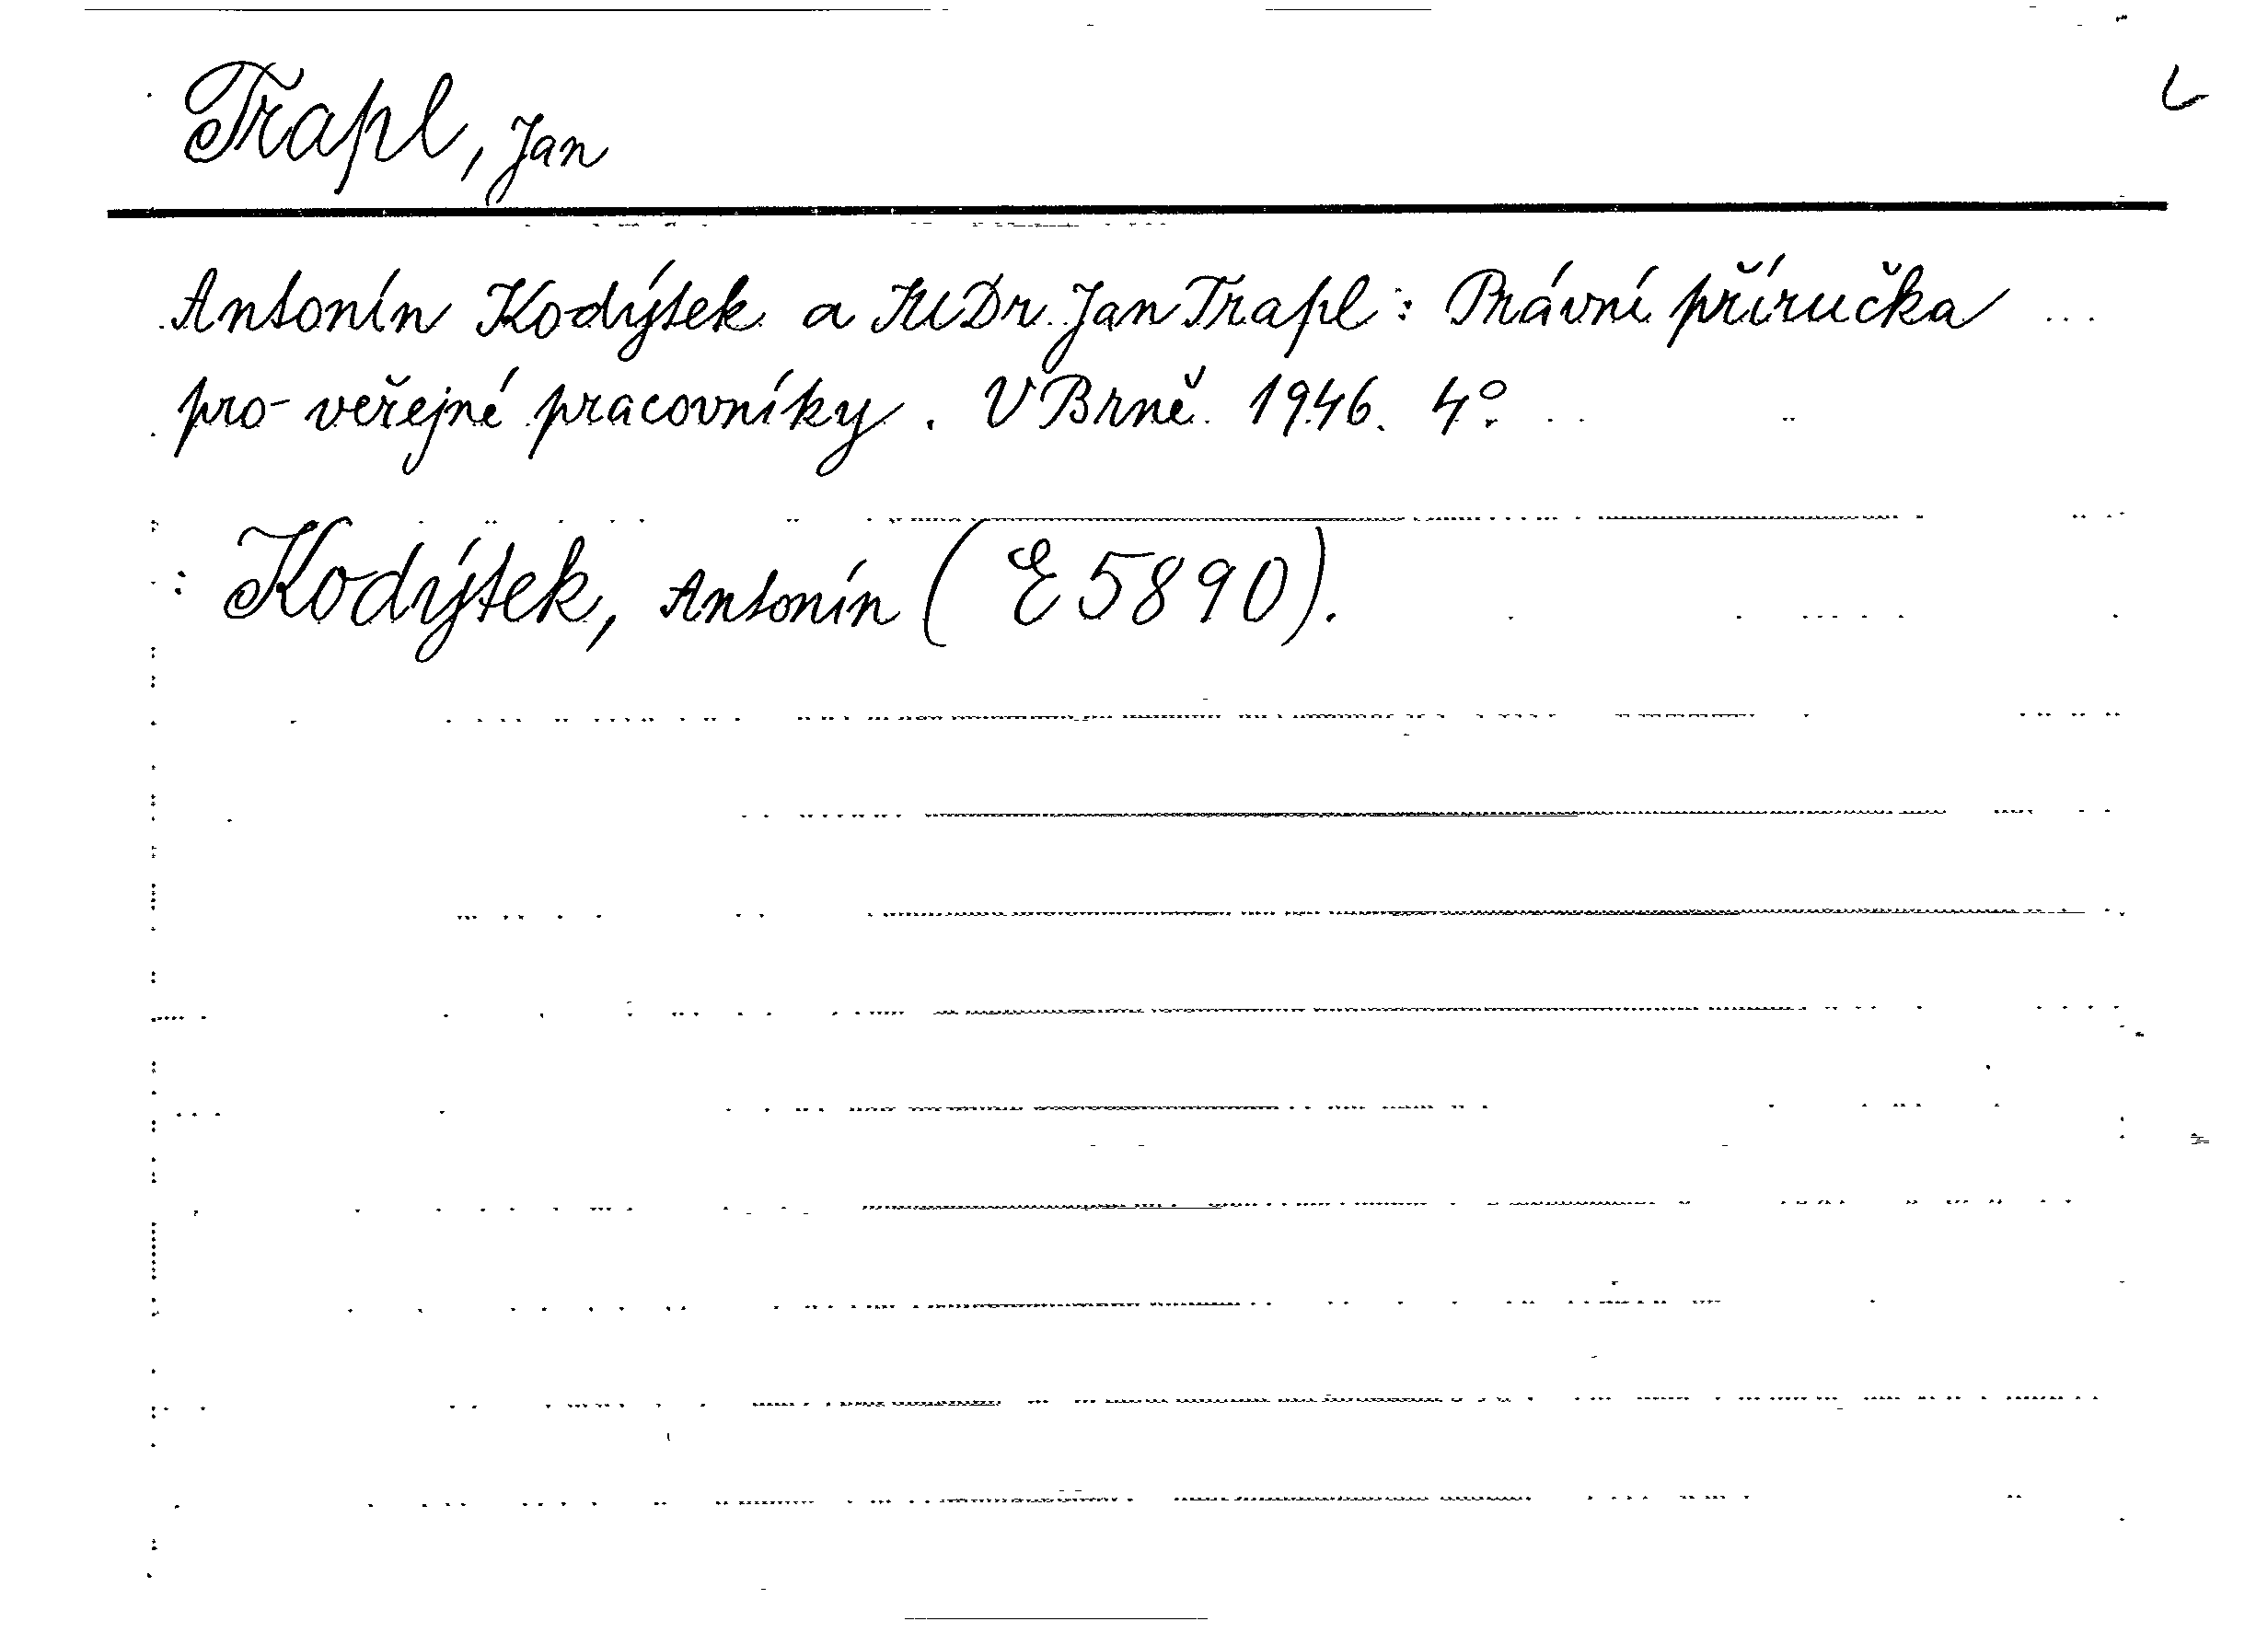 Trapl, Jan
Antonín Kodýtek a MDr. Jan Trapl: Právní příručka
pro veřejné pracovníky. V Brně. 1946. 4°.
: Kodýtek, Antonín (E 5890).